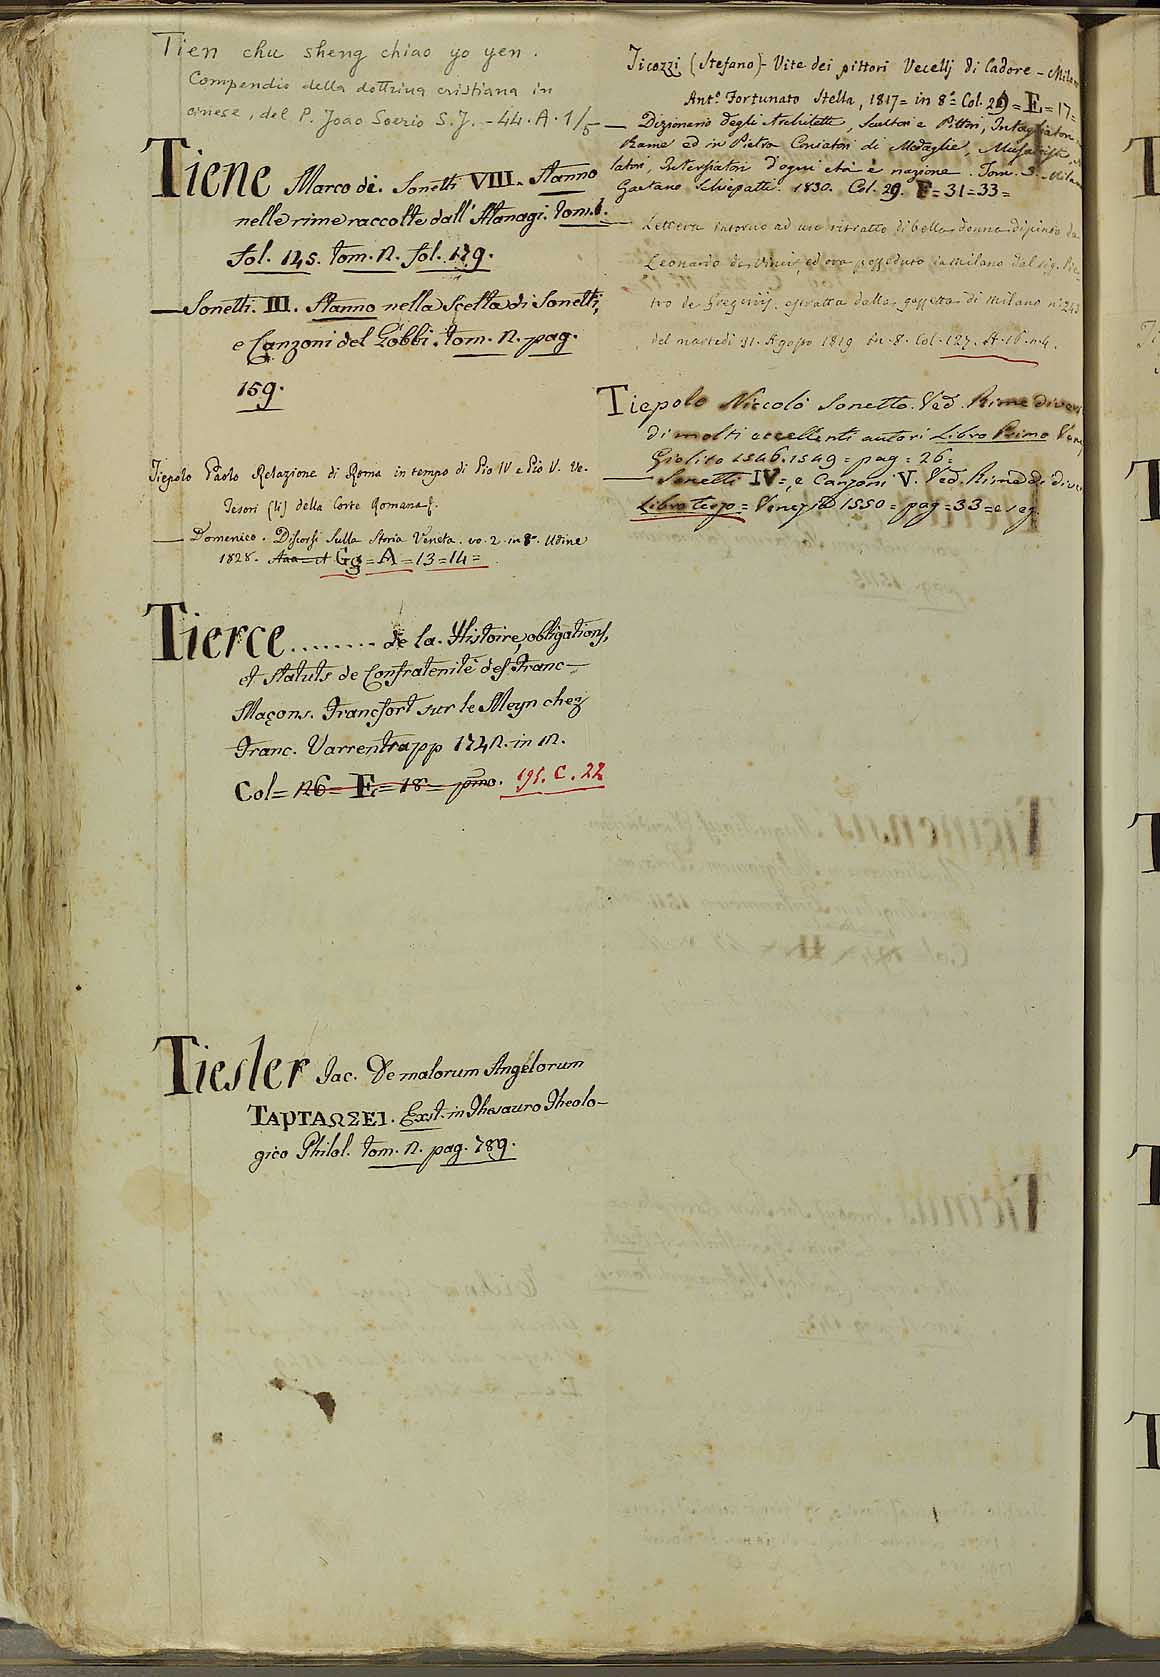 Tien chu sheng chiao yo yen.
Compendio della dottrina cristiana in
cinese, del P. Joao Soerio S.J. - 44. A. 1/5
Tiene Marco di. Sonetti VIII. Stanno
nelle rime raccolte dall' Atanagi. tom. 1.
fol. 125. tom. 2. fol. 179.
— Sonetti. III. Stanno nella Scelta di Sonetti,
e Canzoni del Gobbi. tom. 2. pag.
159.
Tiepolo Paolo Relazione di Roma in tempo di Pio IV e Pio V. Ve.
Tesori (li) della Corte Romana f.
— Domenico. Discorsi sulla Storia Veneta. vo. 2. in 8° Udine
1828. Gg = A = 13 = 14 =
Tierce ........ de la. Histoire, obligations,
et Statuts de Confraternité des Franc-
Maçons. Francfort sur le Meyn chez
Franc. Varrentrapp 1742. in 12.
Col = 126 = E = 18 = pmo. 195. C. 22
Tiesler Jac. De malorum Angelorum
ΤΑΡΤΑΩΣΕΙ. Exst. in Thesauro Theolo-
gico Philol. tom. 2. pag. 789.
Ticozzi (Stefano) - Vite dei pittori Vecellj di Cadore - Milan
Ant.° Fortunato Stella, 1817 = in 8° Col. 29 = E = 17 =
— Dizionario degli Architetti, Scultori e Pittori, Intagliatori
Rame ed in Pietra Coniatori di Medaglie, Musaicisti,
latori, Intersiatori d'ogni età e nazione. Tom. 3. Milan
Gaetano Schiepatti. 1830. Col. 29. F = 31 = 33 =
— Lettera intorno ad un ritratto di bella donna dipinto da
Leonardo da Vinci, ed ora posseduto in Milano dal sig. Pie-
tro de Gregorij, estratta dalla gazzetta di Milano n° 243
del martedì 31. Agosto 1819 in 8. Col. 127. A. 16. n. 4.
Tiepolo Niccolò Sonetto. Ved. Rime diverse
di molti eccellenti autori Libro Primo Vene
Giolito 1546. 1549 = pag = 26 =
— Sonetti IV =, e Canzoni V. Ved. Rime di dive
Libro terzo = Venezia 1550 = pag = 33 = e seg.